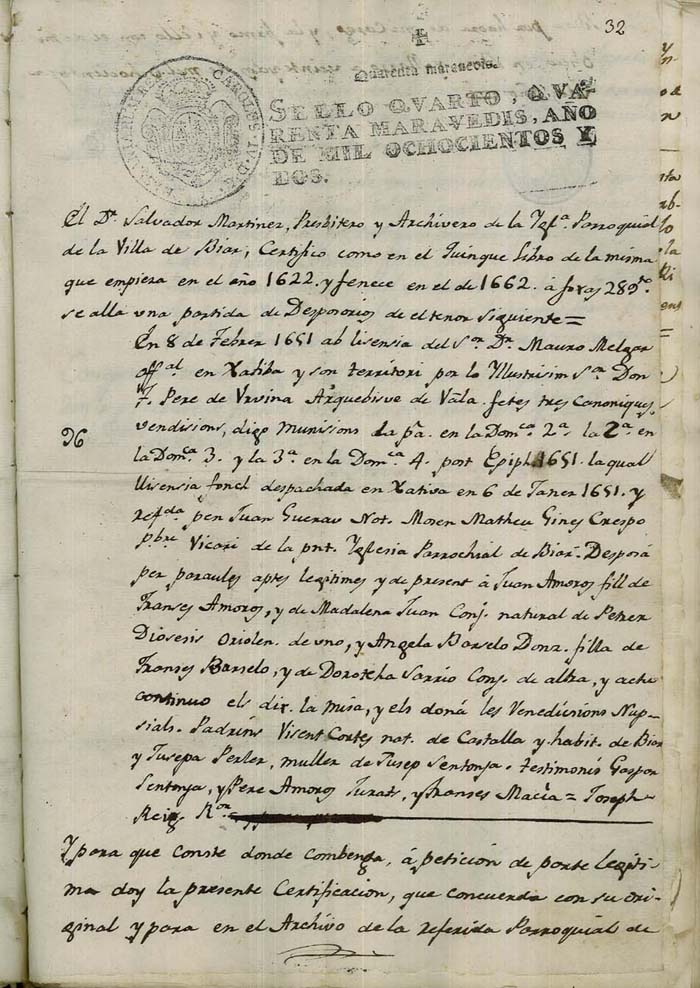 32
Quarenta maravedis.
SELLO QVARTO, QVA-
RENTA MARAVEDIS, AÑO
DE MIL OCHOCIENTOS Y
DOS.
CAROLUS IV D. G.
El Dr. Salvador Martinez, Presbitero y Archivero de la Yglª. Parroquial
de la Villa de Biar, Certifico como en el Quinque Libro de la misma
que empieza en el año 1622. y fenece en el de 1662. á foxas 289
se alla una partida de Desposorios de el tenor siguiente =
En 8 de Febrer 1651 ab lisensia del Sor. Dr. Mauro Melgar
offal. en Xatiba y son territori por lo Yllustrisim Sor. Don
F. Pere de Urvina Arquebisve de Vala. fetes tres canoniques
vendisions, digo munisions la pª. en la Domca. 2ª. la 2ª. en
la Domca. 3. y la 3ª en la Domca. 4. post Epiph. 1651. la qual
llisensia fonch despachada en Xativa en 6 de Janer 1651. y
refda. pen Juan Guerau Not. Mosen Matheu Gines Crespo
pbre. Vicari de la pnt. Yglesia Parrochial de Biar. Desposá
per paraules aptes legitimes y de present á Juan Amoros fill de
Franses Amoros, y de Madalena Juan Conj. natural de Petrer
Diosesis Oriolen. de uno, y Angela Barselo Donz. filla de
Franses Barselo, y de Dorotcha Sarrio Conj. de altra, y acte
continuo els dix. la misa, y els doná les Venedicsions Nup-
sials. Padrins Visent Cortes nat. de Castalla y habit. de Biar
y Jusepa Perler, muller de Jusep Sentonja. testimonis Gaspar
Sentonja, y Pere Amoros Jurats, y Franses Maçia = Joseph
Reig. Ror.
96
Y para que conste donde combenga, á petición de parte legiti-
ma doy la presente Certificacion, que concuerda con su ori-
ginal y para en el Archivo de la referida Parroquial de